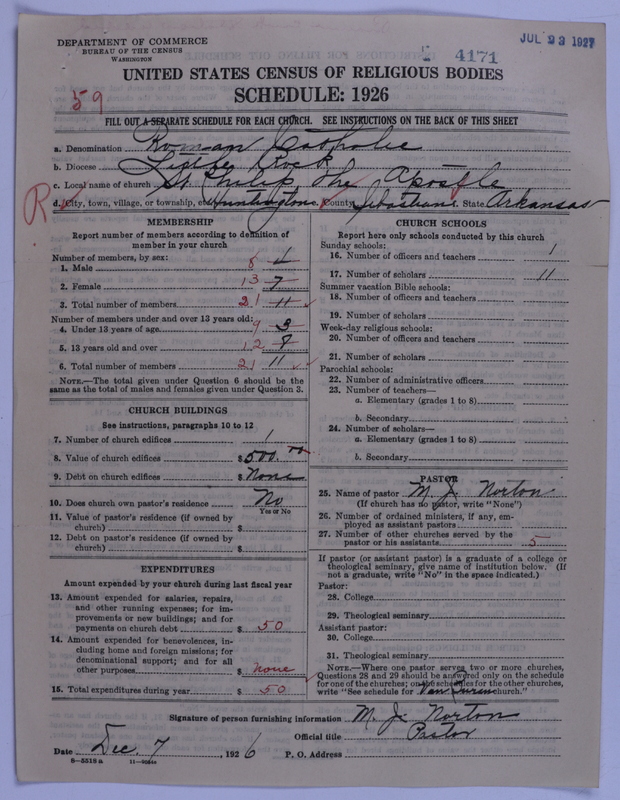 DEPARTMENT OF COMMERCE
BUREAU OF THE CENSUS
WASHINGTON
4171
JUL 23 1927
UNITED STATES CENSUS OF RELIGIOUS BODIES
SCHEDULE: 1926
59
FILL OUT A SEPARATE SCHEDULE FOR EACH CHURCH. SEE INSTRUCTIONS ON THE BACK OF THIS SHEET
a. Denomination Roman Catholic
b. Diocese Little Rock
c. Local name of church St. Philip The Apostle
R
d. City, town, village, or township, etc. Huntington County Sebastian State Arkansas
MEMBERSHIP
Report number of members according to definition of
member in your church
Number of members, by sex:
1. Male 8 4
2. Female 13 7
3. Total number of members 21 11
Number of members under and over 13 years old:
4. Under 13 years of age 9 3
5. 13 years old and over 12 8
6. Total number of members 21 11
NOTE.—The total given under Question 6 should be the
same as the total of males and females given under Question 3.
CHURCH BUILDINGS
See instructions, paragraphs 10 to 12
7. Number of church edifices 1
8. Value of church edifices $500.00
9. Debt on church edifices $None
10. Does church own pastor's residence No
Yes or No
11. Value of pastor's residence (if owned by
church) $
12. Debt on pastor's residence (if owned by
church) $
EXPENDITURES
Amount expended by your church during last fiscal year
13. Amount expended for salaries, repairs,
and other running expenses; for im-
provements or new buildings; and for
payments on church debt $ 50
14. Amount expended for benevolences, in-
cluding home and foreign missions; for
denominational support; and for all
other purposes $ none
15. Total expenditures during year $ 50
CHURCH SCHOOLS
Report here only schools conducted by this church
Sunday schools:
16. Number of officers and teachers 1
17. Number of scholars 11
Summer vacation Bible schools:
18. Number of officers and teachers
19. Number of scholars
Week-day religious schools:
20. Number of officers and teachers
21. Number of scholars
Parochial schools:
22. Number of administrative officers
23. Number of teachers—
a. Elementary (grades 1 to 8)
b. Secondary
24. Number of scholars—
a. Elementary (grades 1 to 8)
b. Secondary
PASTOR
25. Name of pastor M. J. Norton
(If church has no pastor, write "None")
26. Number of ordained ministers, if any, em-
ployed as assistant pastors
27. Number of other churches served by the
pastor or his assistants 5
If pastor (or assistant pastor) is a graduate of a college or
theological seminary, give name of institution below. (If
not a graduate, write "No" in the space indicated.)
Pastor:
28. College
29. Theological seminary
Assistant pastor:
30. College
31. Theological seminary
NOTE.—Where one pastor serves two or more churches,
Questions 28 and 29 should be answered only on the schedule
for one of the churches; on the schedules for the other churches,
write "See schedule for Van Buren church."
Signature of person furnishing information M. J. Norton
Official title Pastor
Date Dec. 7, 1926 P. O. Address
8—5518 a